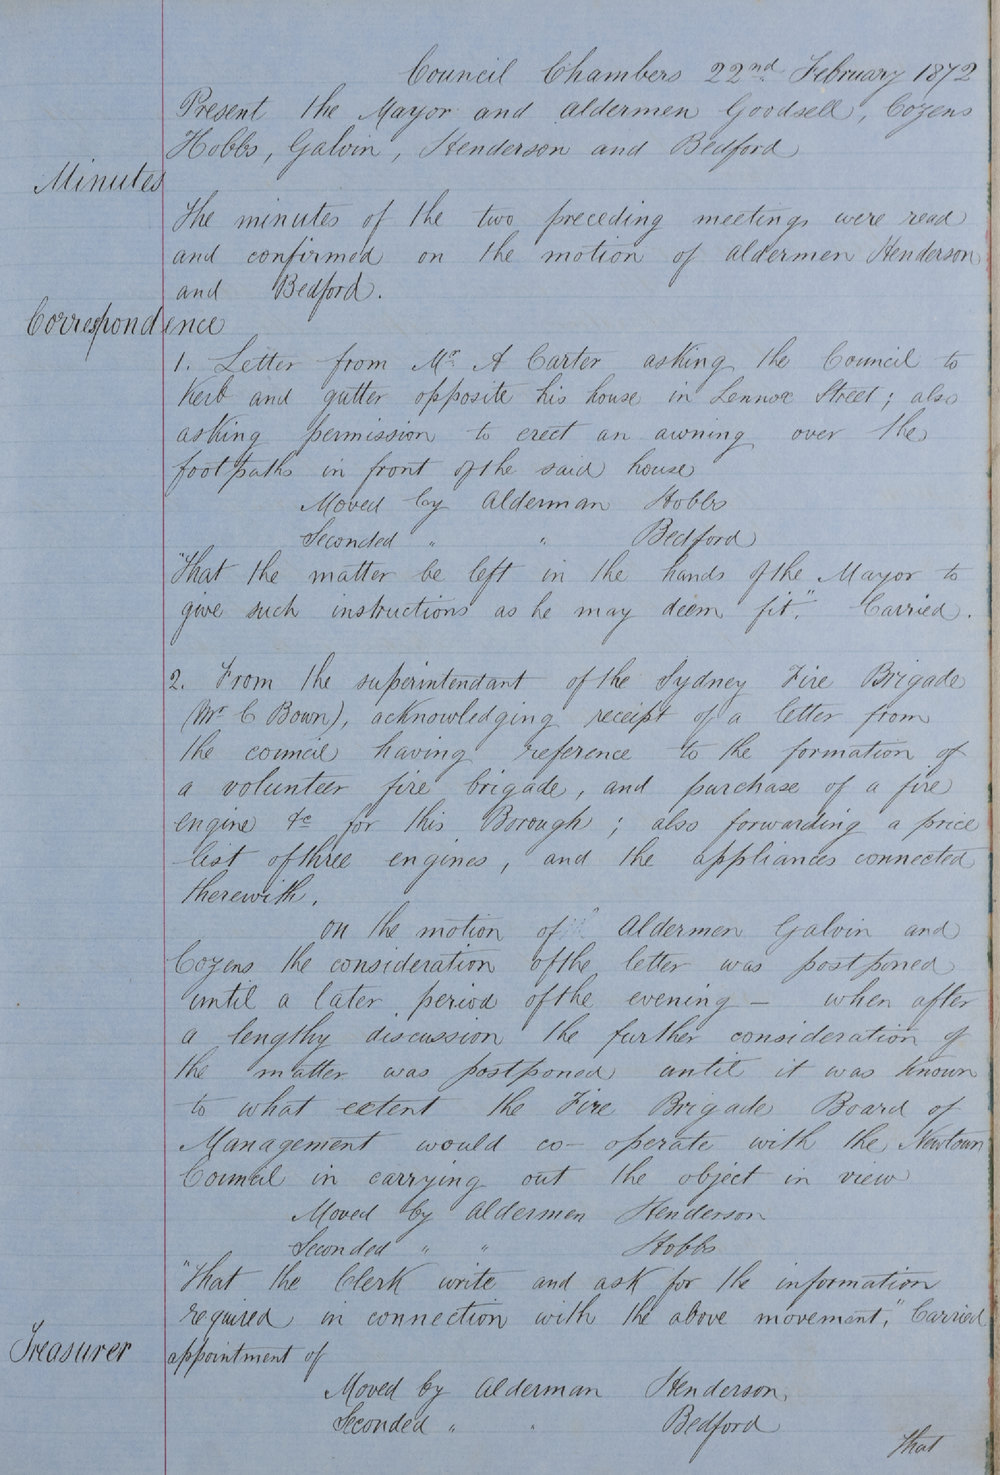 Council Chambers 22nd February 1872
Present the Mayor and Aldermen Goodsell, Cozens
Hobbs, Galvin, Henderson and Bedford
Minutes
The minutes of the two preceding meetings were read
and confirmed on the motion of Aldermen Henderson
and Bedford.
Correspondence
1. Letter from Mr. A Carter asking the Council to
Kerb and gutter opposite his house in Lennox Street; also
asking permission to erect an awning over the
footpaths in front of the said house
Moved by Alderman Hobbs
Seconded " " Bedford
"That the matter be left in the hands of the Mayor to
give such instructions as he may deem fit." Carried.
2. From the superintendant of the Sydney Fire Brigade
(Mr C Bown), acknowledging receipt of a letter from
the council having reference to the formation of
a volunteer fire brigade, and purchase of a fire
engine &c for this Borough; also forwarding a price
list of three engines, and the appliances connected
therewith.
On the motion of Aldermen Galvin and
Cozens the consideration of the letter was postponed
until a later period of the evening – when after
a lengthy discussion the further consideration of
the matter was postponed until it was known
to what extent the Fire Brigade Board of
Management would co-operate with the Newtown
Council in carrying out the object in view
Moved by Aldermen Henderson
Seconded " " Hobbs
"That the Clerk write and ask for the information
required in connection with the above movement." Carried
Treasurer appointment of
Moved by Alderman Henderson,
Seconded " " Bedford
That